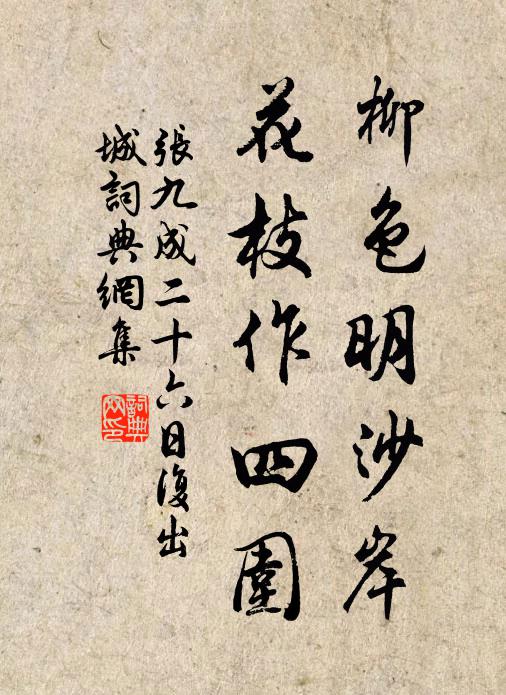 柳色明沙岸
花枝作四圍
張九成二十六日復出
城詞典網集
詞典網印